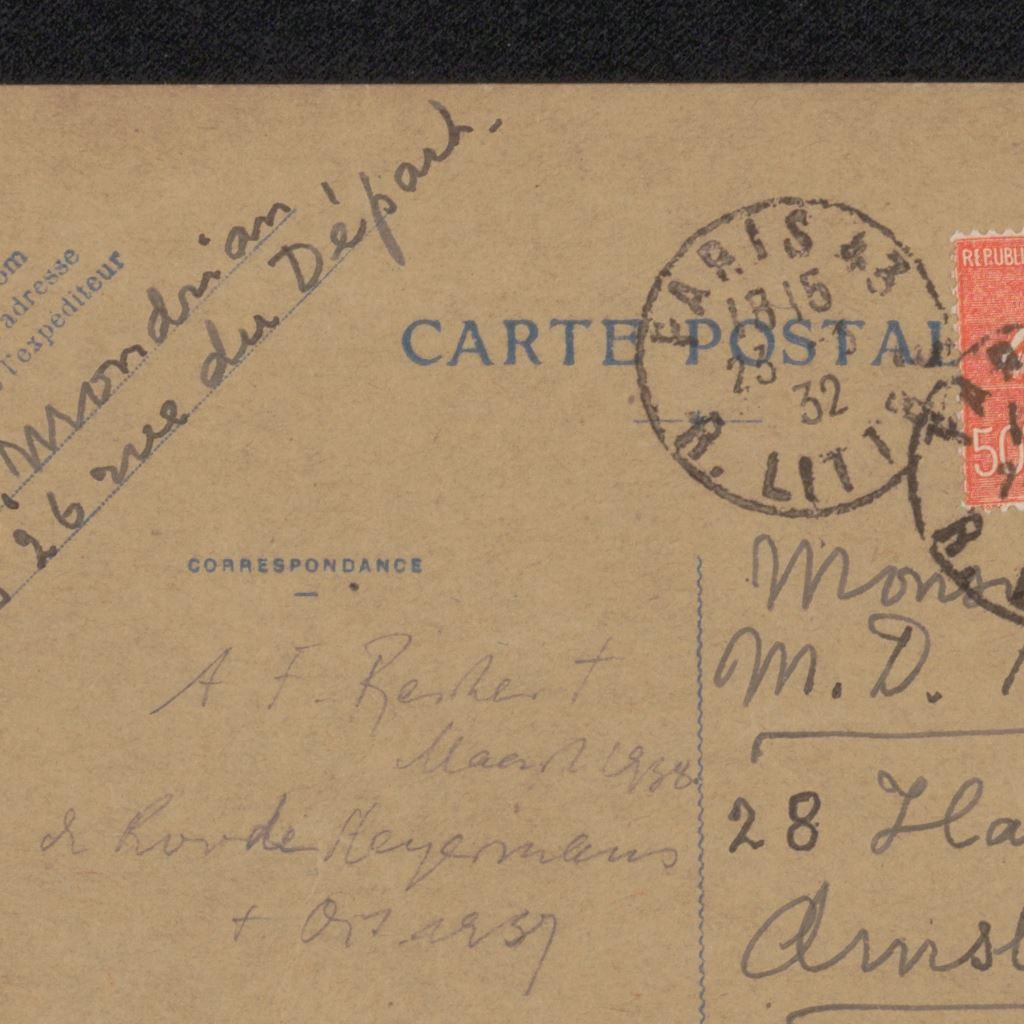 adresse
l'expéditeur
Mondrian
26 rue du Départ.
CARTE POSTAL
PARIS 43
18 15
23
32
R. LITT
REPUBLI
50
CORRESPONDANCE
A F
Maart 1938
de Roode Heyermans
+ Oct 1937
M. D.
28